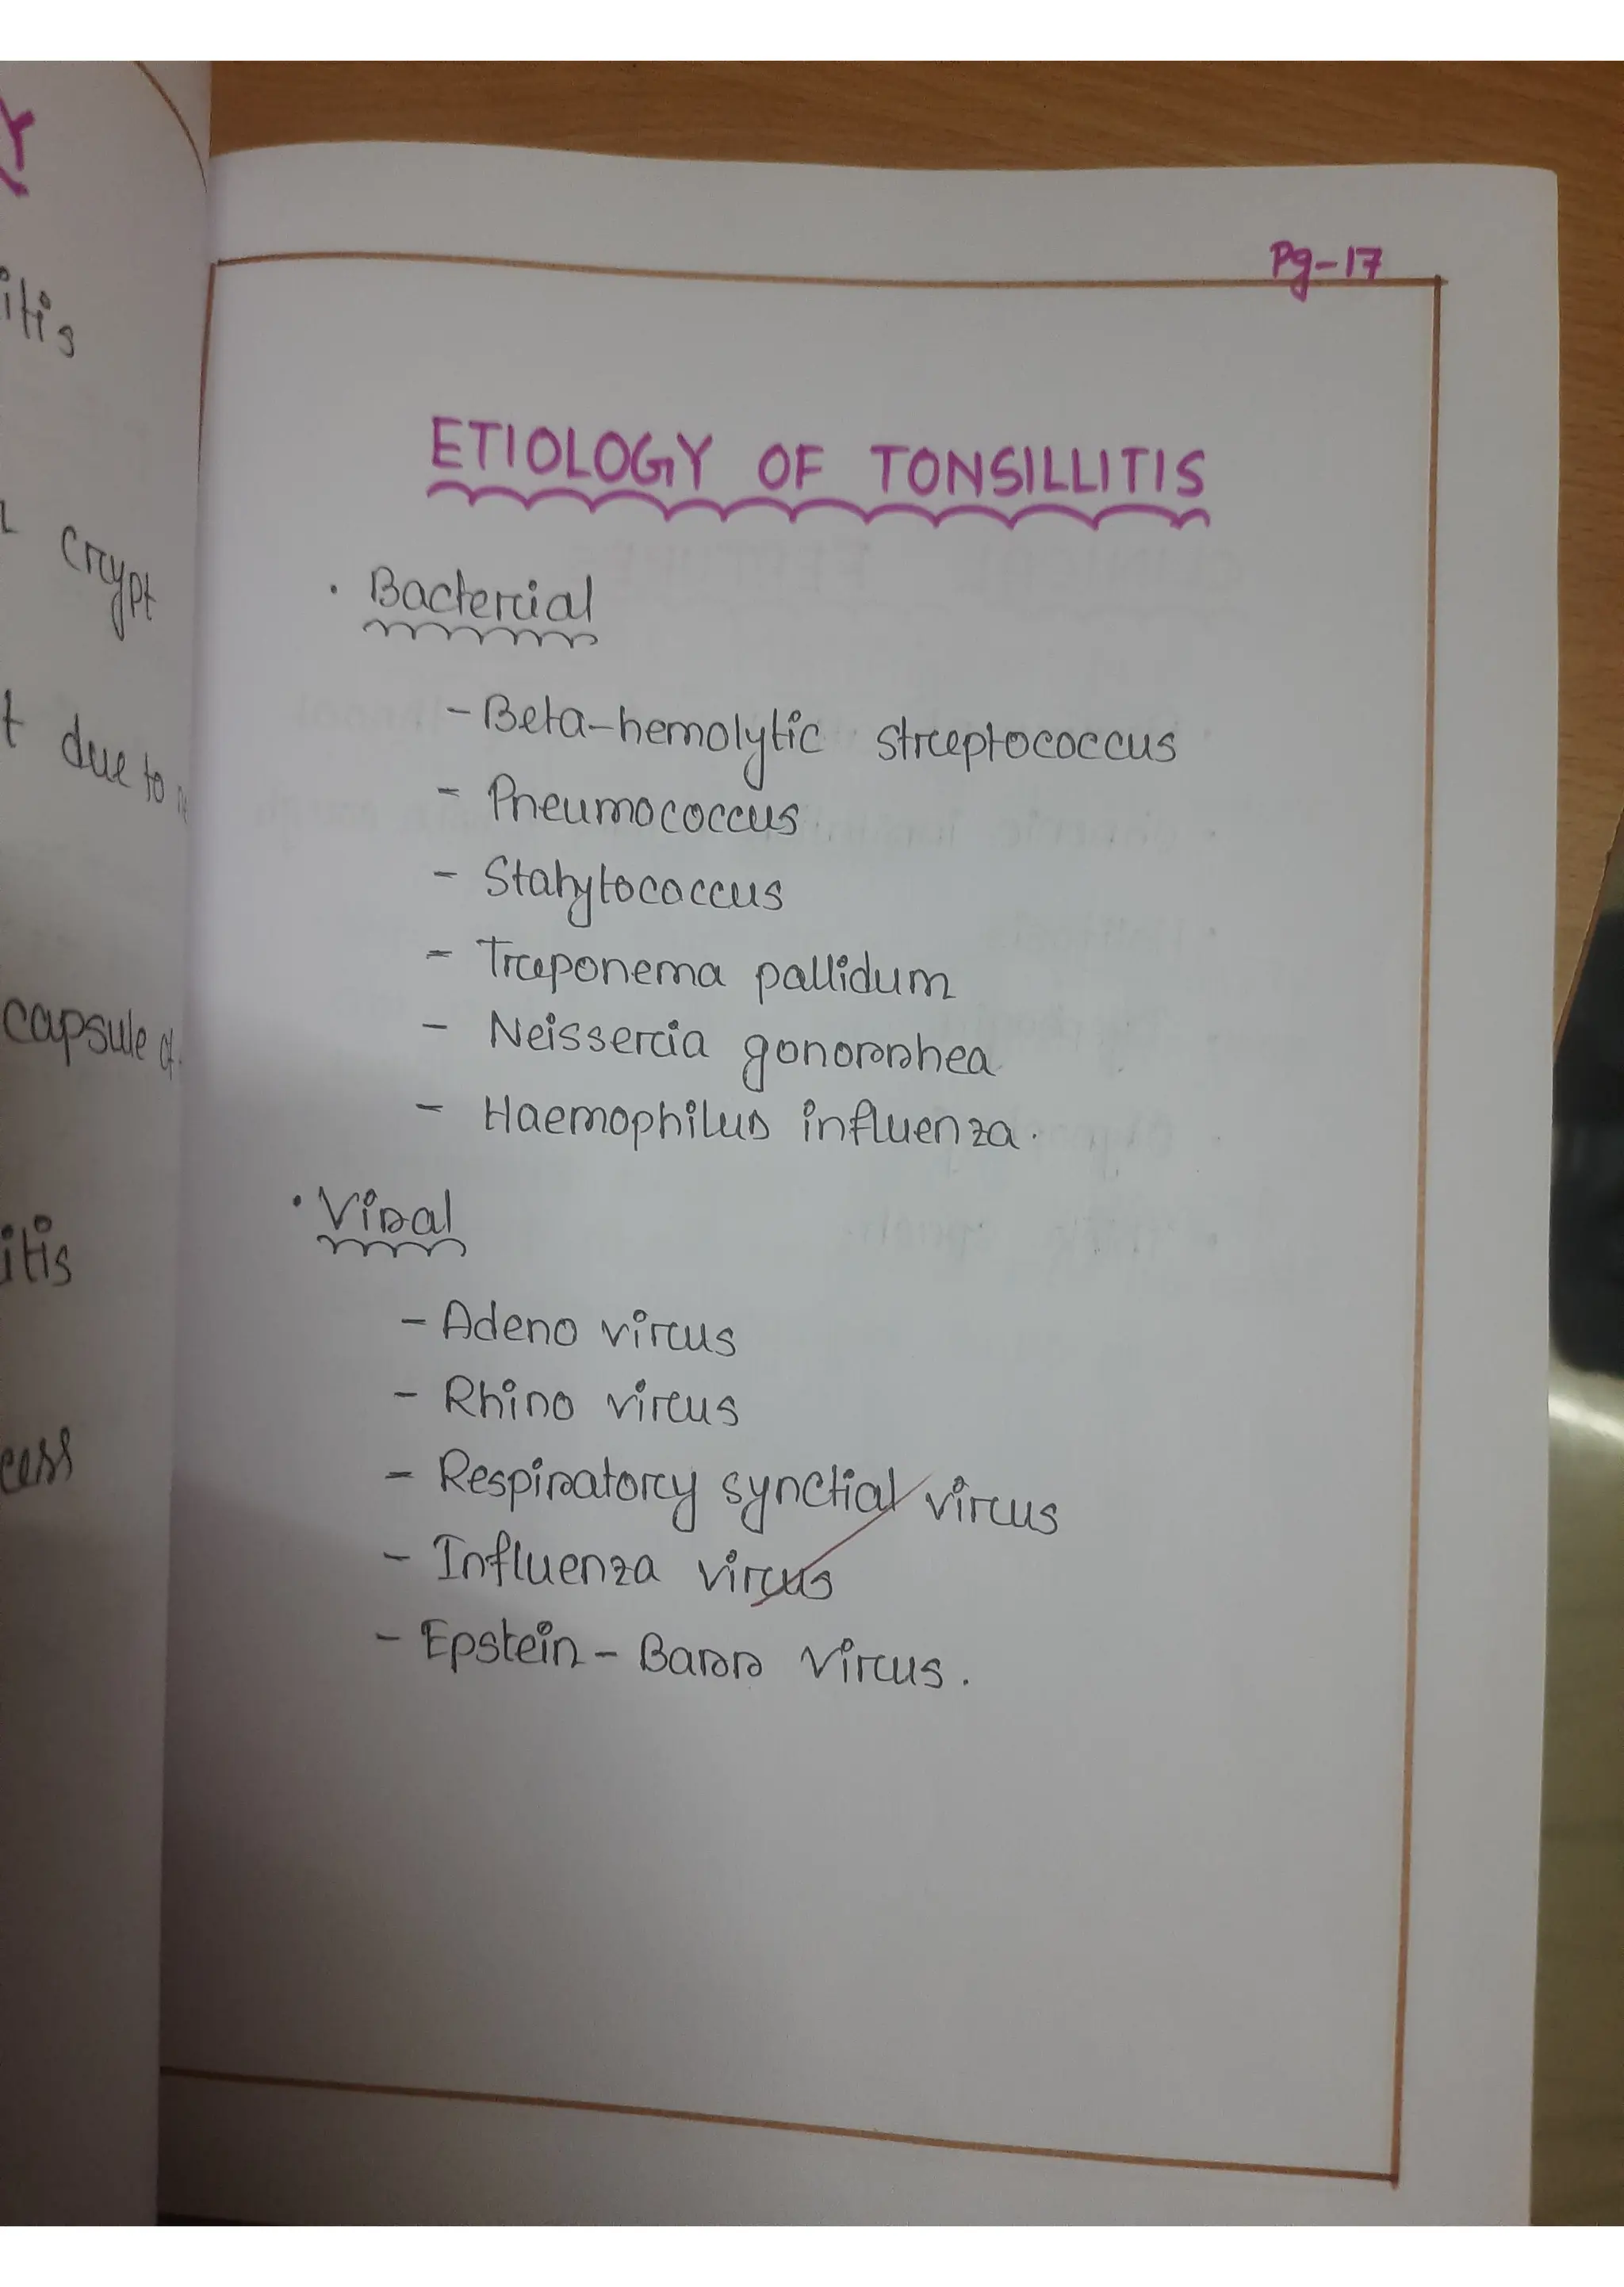 Y
itis
crypt
t due to
capsule of
itis
cess
Pg-17
ETIOLOGY OF TONSILLITIS
• Bacterial
- Beta-hemolytic streptococcus
- Pneumococcus
- Stahytococcus
- Treponema pallidum
- Neisseria gonorrhea
- Haemophilus influenza.
• Viral
- Adeno virus
- Rhino virus
- Respiratory synctial virus
- Influenza virus
- Epstein - Barr virus.